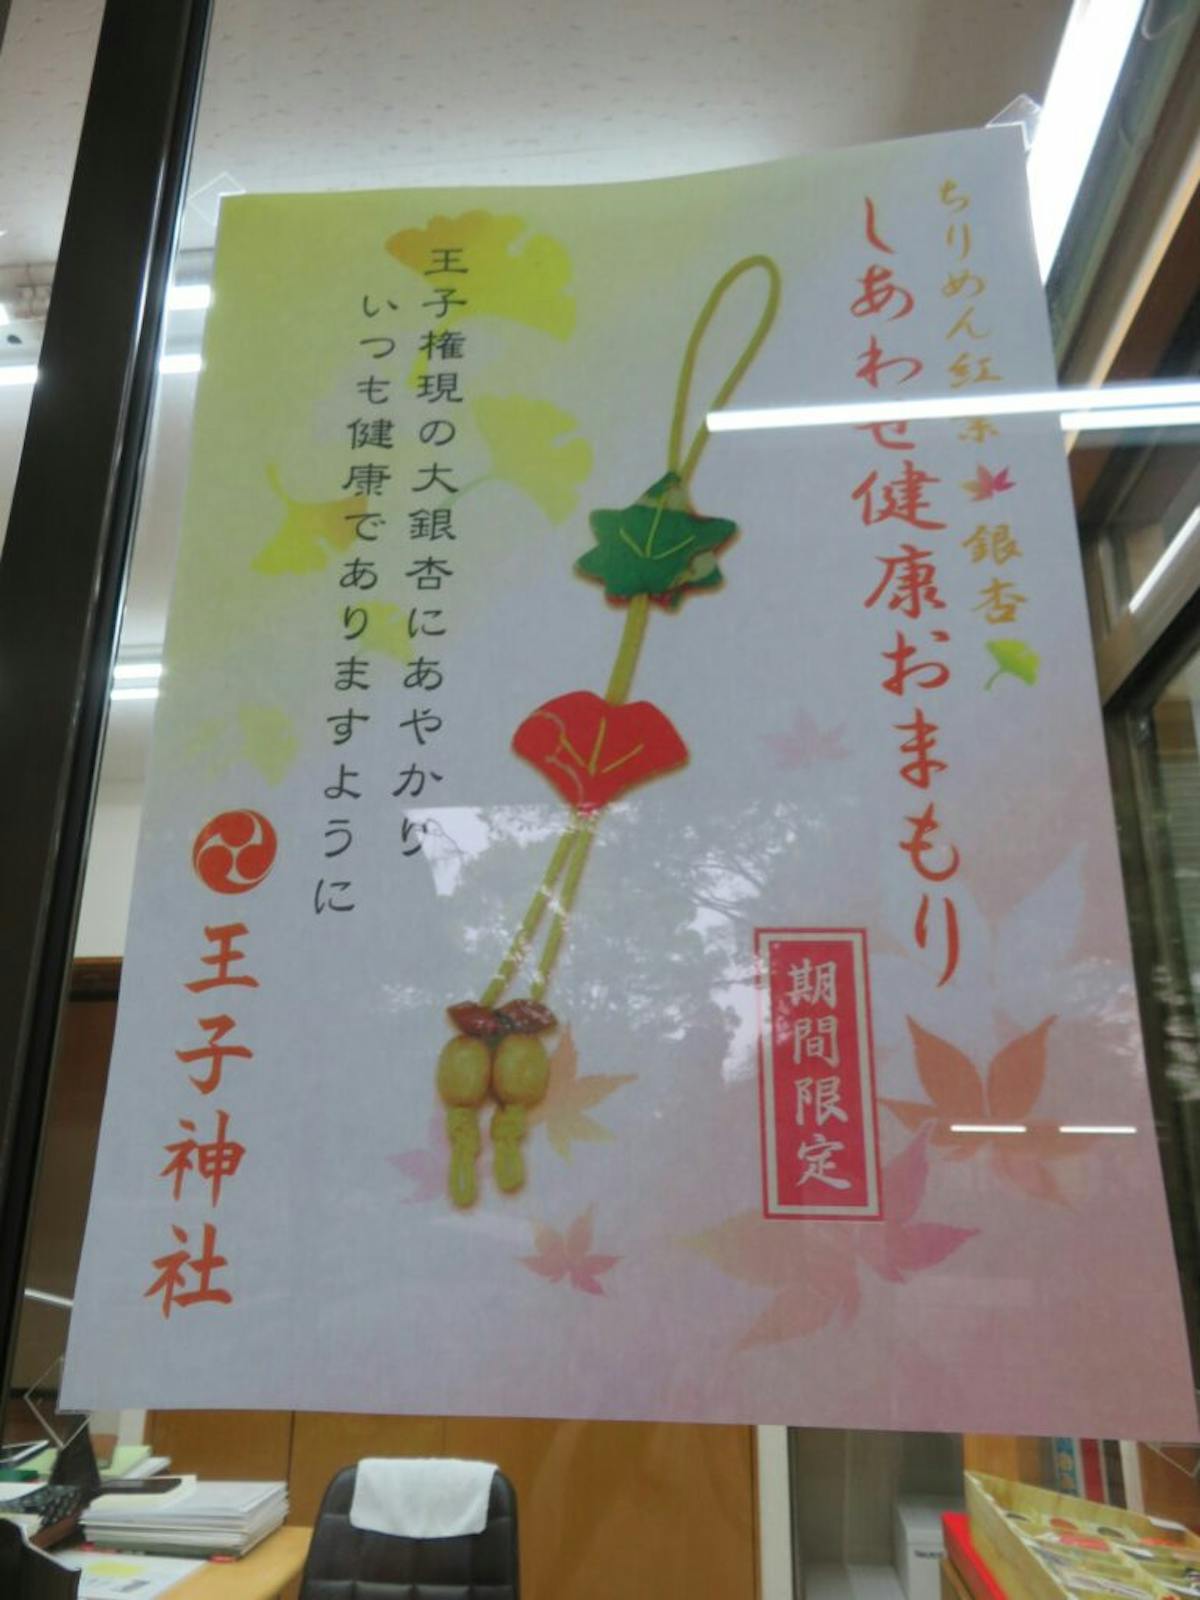 ちりめん紅葉 銀杏
しあわせ健康おまもり
期間限定
王子権現の大銀杏にあやかり
いつも健康でありますように
王子神社